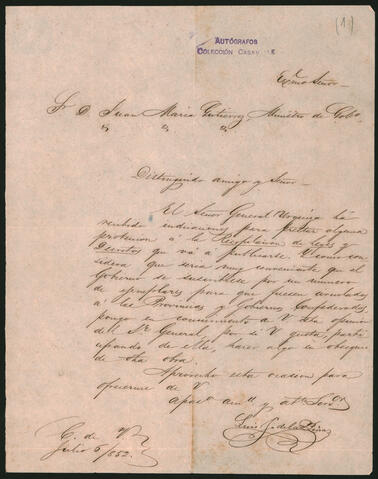 (1)
AUTÓGRAFOS
COLECCIÓN CASAV LE
Exmo Señor
Sr. D. Juan María Gutierrez, Ministro de Gobo.
Distinguido amigo y Señor
El Señor General Urquiza há
venido indicarme, para prestar alguna
proteccion á la Recopilacion de leyes y
Decretos que vá á publicarse. Y como con-
sidera que seria muy conveniente que el
Gobierno se suscribiese por un numero
de ejemplares para que fuesen circulados
á las Provincias y Gobiernos Confederados,
pongo en conocimiento de V. esta opinion
del Sr. General, por si V. gusta, parti-
cipando de ella, hacer algo en obsequio
de dha obra.
Aprovecho esta ocasion para
ofrecerme de V.
Luis J. de la Peña
C. de V.
Julio 5/852.